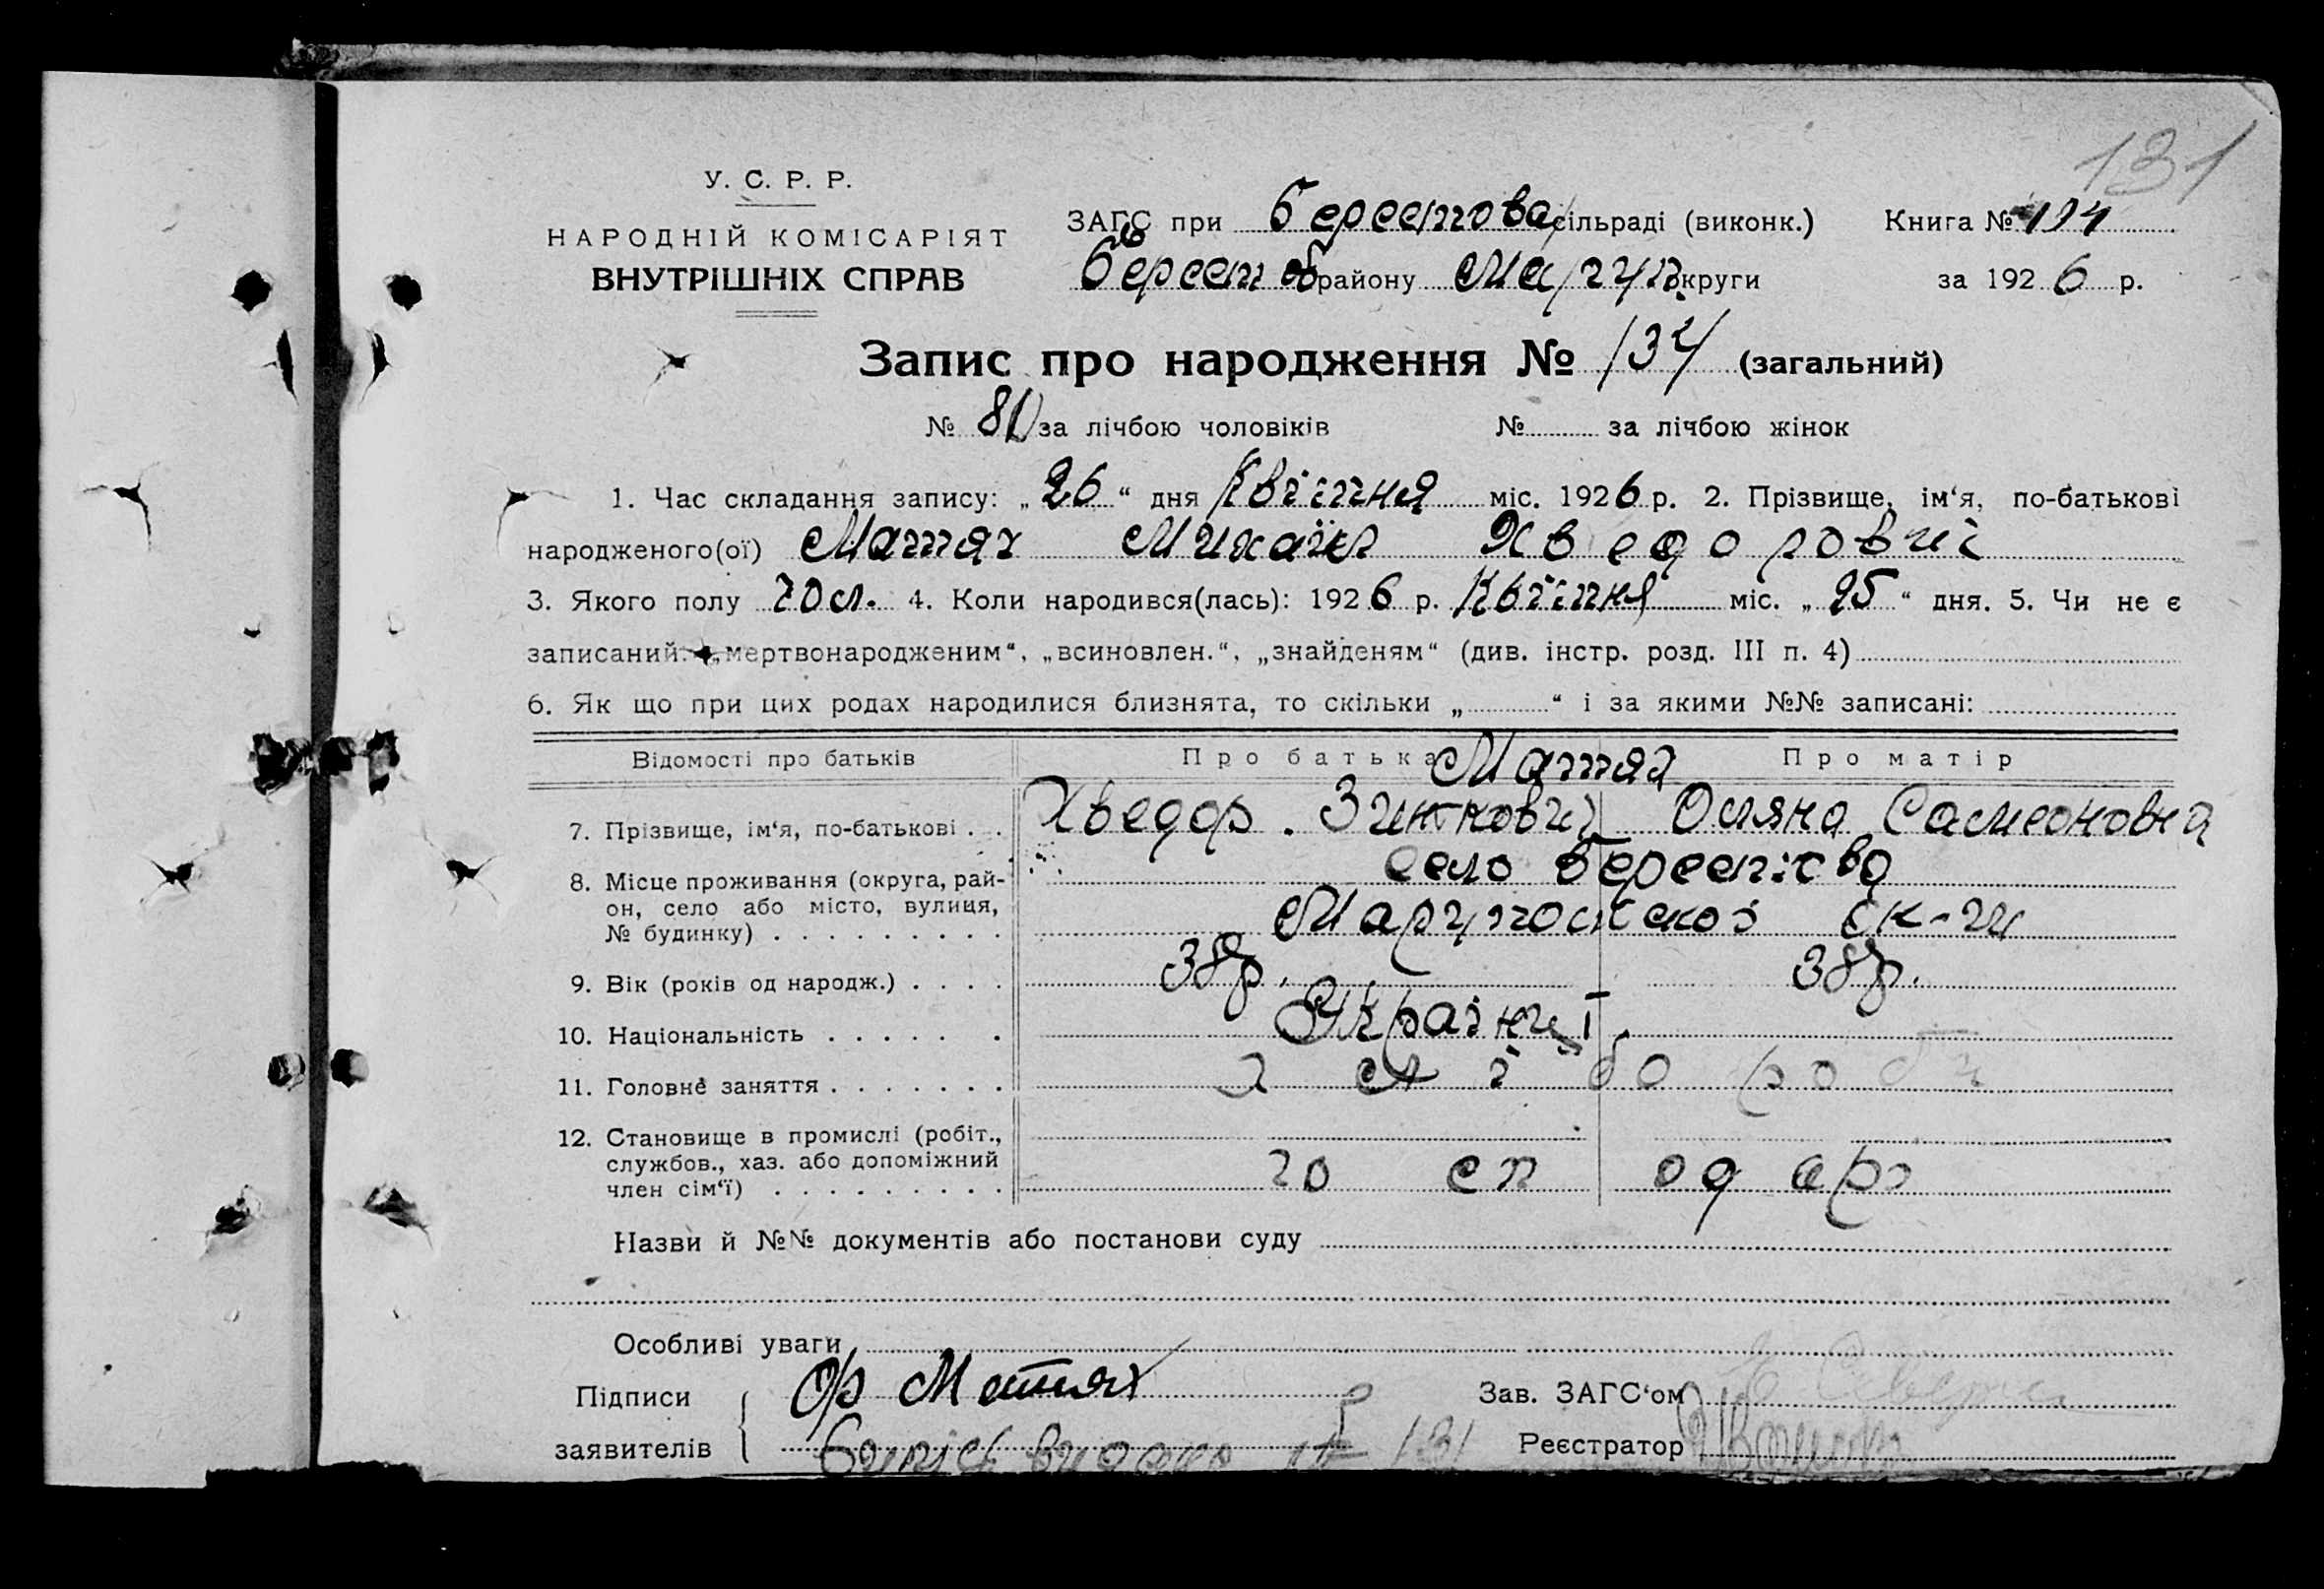 131
У. С. Р. Р.
НАРОДНІЙ КОМІСАРІЯТ
ВНУТРІШНІХ СПРАВ
ЗАГС при Берестова сільраді (виконк.)
Берестов району Маруп округи
Книга №
за 1926 р.
Запис про народження № 134 (загальний)
№ 81 за лічбою чоловіків № за лічбою жінок
1. Час складання запису: „26“ дня Квітня міс. 1926 р. 2. Прізвище, ім‘я, по-батькові
народженого(ої) Матях Михаїл Хведорович
3. Якого полу чол. 4. Коли народився(лась): 1926 р. Квітня міс. „25“ дня. 5. Чи не є
записаний: „мертвонародженим“, „всиновлен.“, „знайденям“ (див. інстр. розд. III п. 4)
6. Як що при цих родах народилися близнята, то скільки „ “ і за якими №№ записані:
Відомості про батьків Про батька Про матір
Матях
7. Прізвище, ім‘я, по-батькові . . Хведор Зинкович Оляна Самсоновна
8. Місце проживання (округа, рай-
он, село або місто, вулиця,
№ будинку) . . . . . . . . .
село Берестова
Марупольскої ок-ги
9. Вік (років од народж.) . . . . 38р. 38р.
10. Національність . . . . . . Українці
11. Головне заняття . . . . . . . хлібороб
12. Становище в промислі (робіт.,
службов., хаз. або допоміжний
член сім‘ї) . . . . . . . . .
господар
Назви й №№ документів або постанови суду
Особливі уваги
Підписи
заявителів
Матях
131
Зав. ЗАГС‘ом
Реєстратор